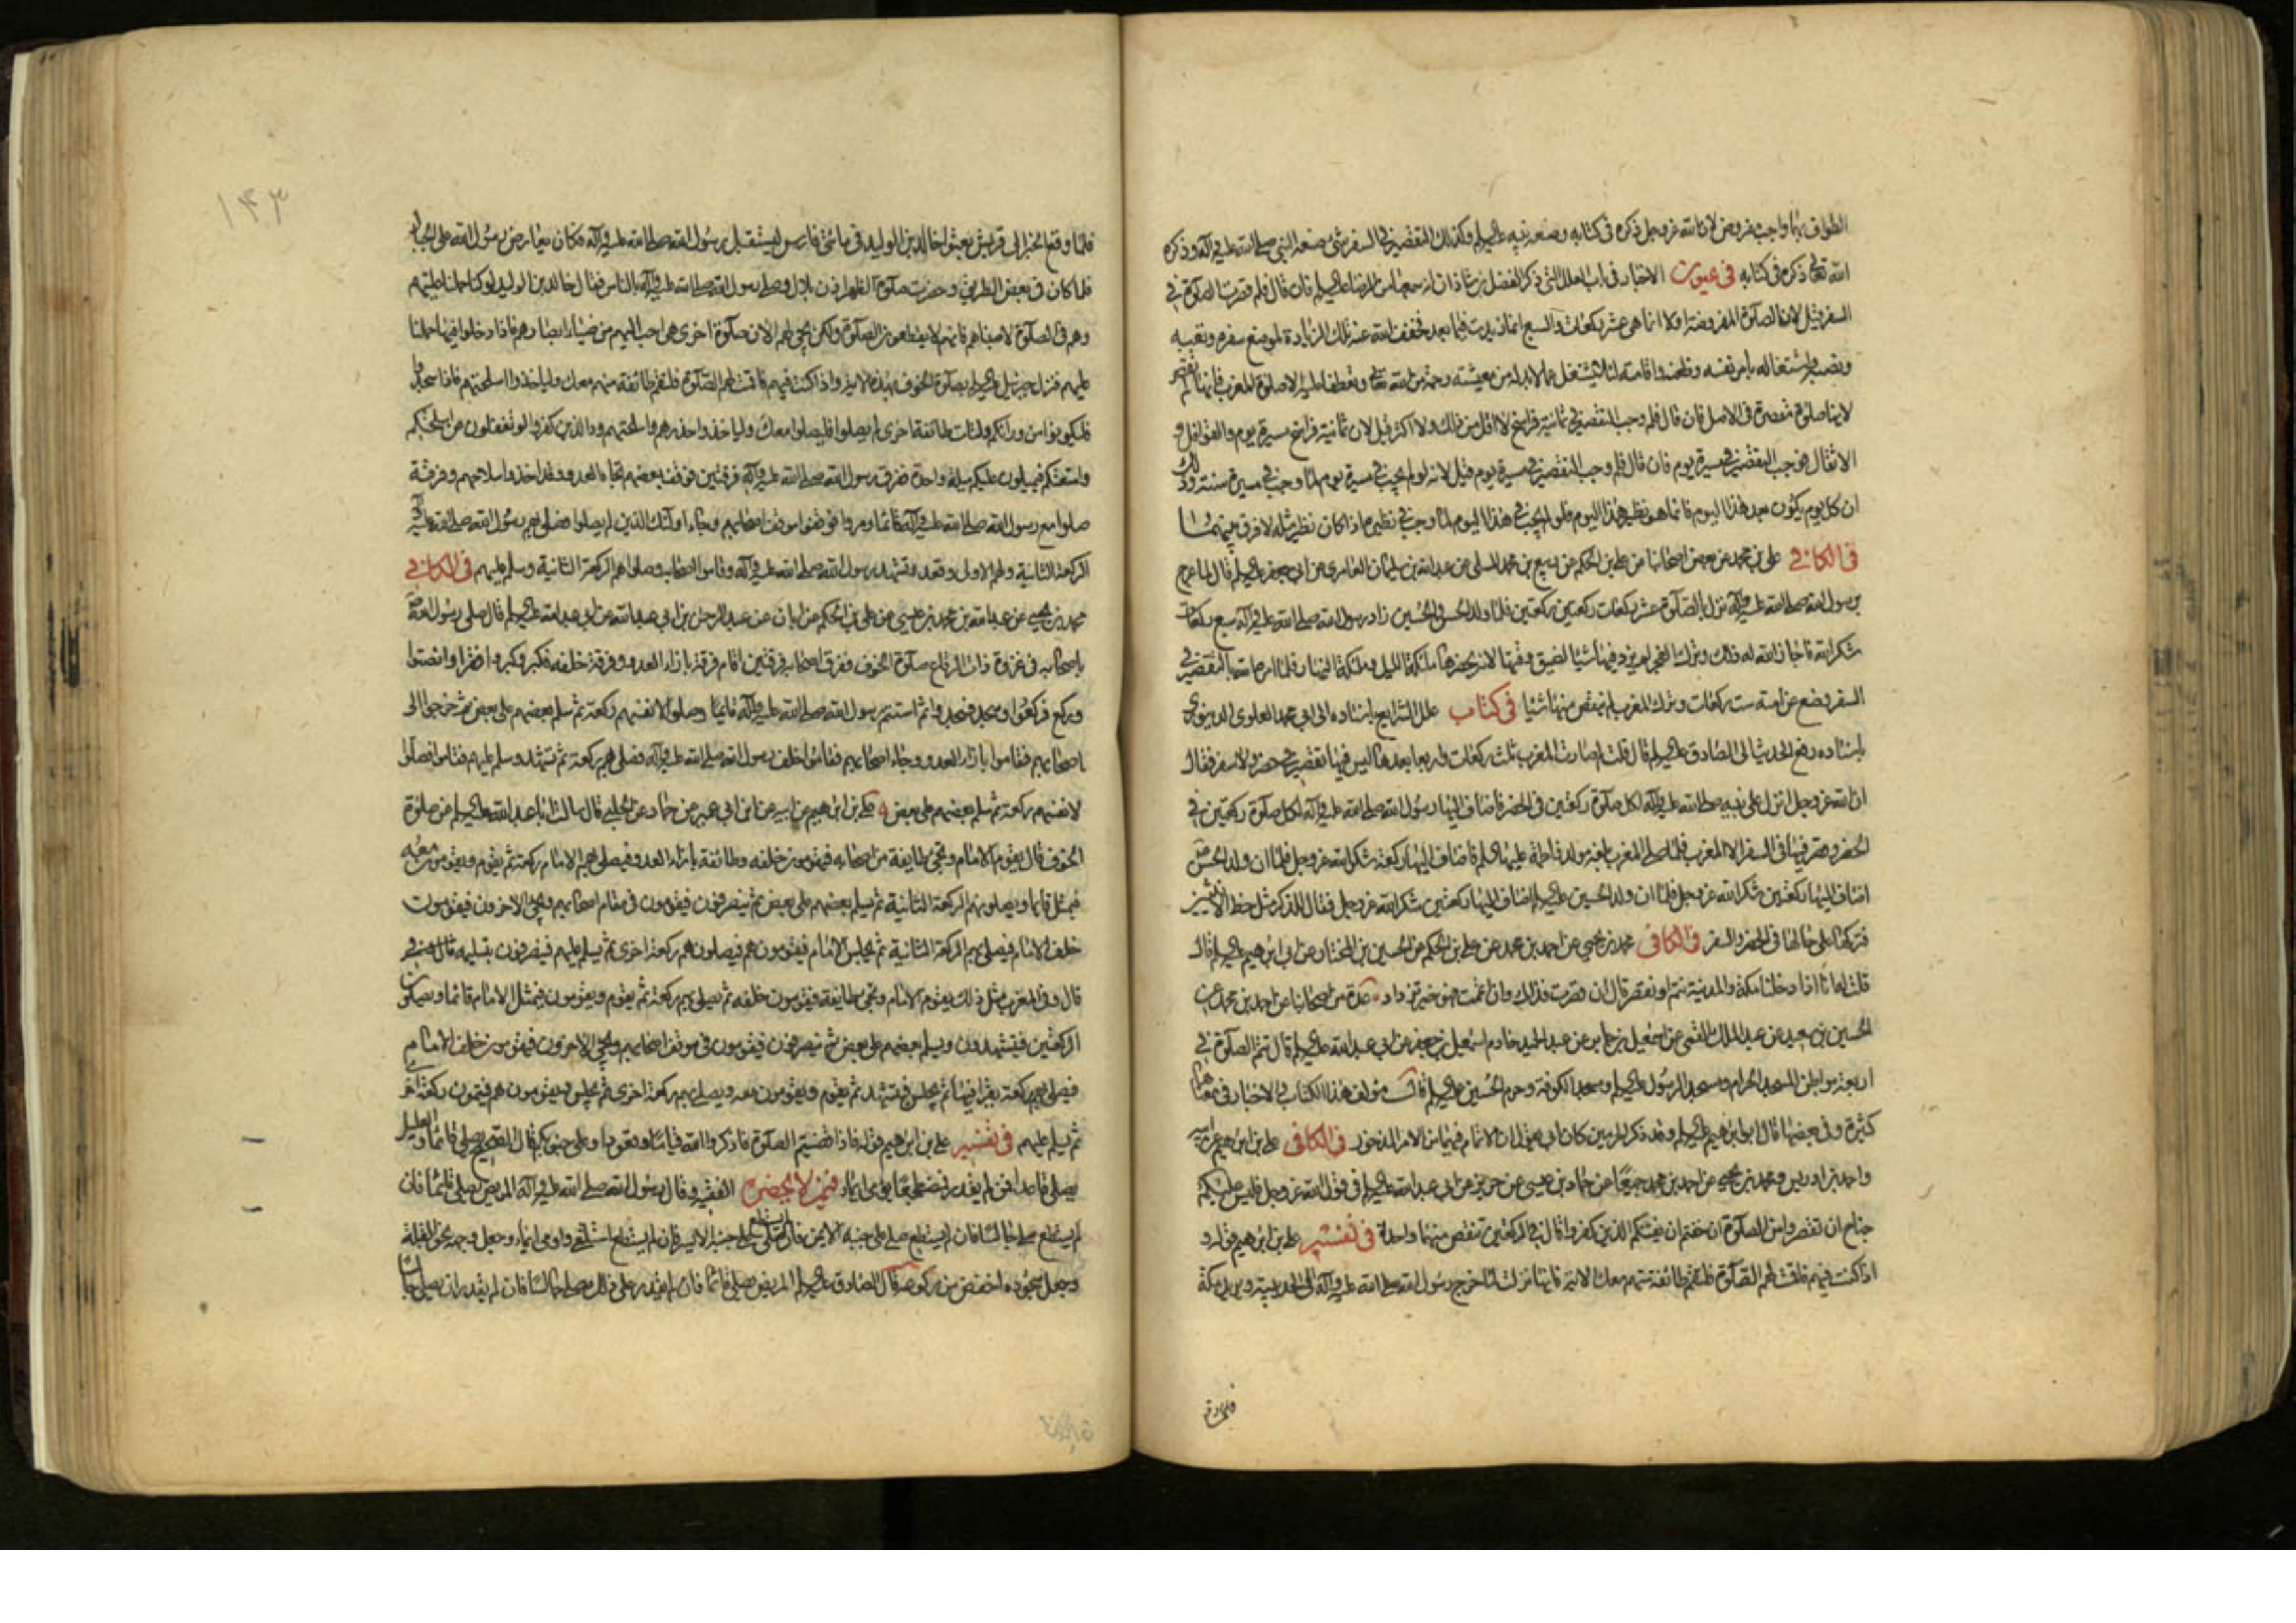 الطواف بهما واجب مفروض لان الله عز وجل ذكره فى كتابه وصنعه نبيه عليه السلم وكذلك التقصير فى السفر شئ صنعه النبى صلى الله عليه وآله وذكره
الله تعالى ذكره فى كتابه فى عيون الاخبار فى باب العلل التى ذكر الفضل بن شاذان انه سمعها من الرضا عليه السلم فان قال فلم قصرت الصلوة فى
السفر قيل لان الصلوة المفروضة اولا انما هى عشر ركعات والسبع انما زيدت فيها بعد فخفف الله عنه تلك الزيادة لموضع سفره وتعبه
ونصبه واشتغاله بامر نفسه وظعنه واقامته لئلا يشتغل عما لابد له من معيشته رحمة من الله تعالى وتعطفا عليه الا صلوة المغرب فانها لم تقصر
لانها صلوة مقصرة فى الاصل فان قال فلم وجب التقصير فى ثمانية فراسخ لا اقل من ذلك ولا اكثر قيل لان ثمانية فراسخ مسيرة يوم للعامة والقوافل و
الاثقال فوجب التقصير فى مسيرة يوم فان قال فلم وجب التقصير فى مسيرة يوم قيل لانه لو لم يجب فى مسيرة يوم لما وجب فى مسيرة سنة وذلك
ان كل يوم يكون بعد هذا اليوم فانما هو نظير هذا اليوم فلو لم يجب فى هذا اليوم لما وجب فى نظيره اذا كان نظيره مثله لا فرق بينهما
فى الكافى على بن محمد عن بعض اصحابنا عن على بن الحكم عن ربيع بن محمد المسلى عن عبد الله بن سليمان العامرى عن ابى جعفر عليه السلم قال لما عرج
برسول الله صلى الله عليه وآله نزل بالصلوة عشر ركعات ركعتين ركعتين فلما ولد الحسن والحسين زاد رسول الله صلى الله عليه وآله سبع ركعات
شكرا لله فاجاز الله له ذلك وترك الفجر لم يزد فيها شيئا لضيق وقتها لانه يحضرها ملئكة الليل وملئكة النهار فلما امره الله بالتقصير فى
السفر وضع عن امته ست ركعات وترك المغرب لم ينقص منها شيئا فى كتاب علل الشرايع باسناده الى ابى محمد العلوى الدينورى
باسناده رفع الحديث الى الصادق عليه السلم قال قلت لم صارت المغرب ثلث ركعات واربعا بعدها ليس فيها تقصير فى حضر ولا سفر فقال
ان الله عز وجل انزل على نبيه صلى الله عليه وآله لكل صلوة ركعتين فى الحضر فاضاف اليها رسول الله صلى الله عليه وآله لكل صلوة ركعتين فى
الحضر وقصر فيها فى السفر الا المغرب فلما صلى المغرب بلغه مولد فاطمة عليها السلم فاضاف اليها ركعة شكرا لله عز وجل فلما ان ولد الحسن
اضاف اليها ركعتين شكرا لله عز وجل فلما ان ولد الحسين عليه السلم اضاف اليها ركعتين شكرا لله عز وجل فقال للذكر مثل حظ الانثيين
فتركها على حالها فى الحضر والسفر فى الكافى محمد بن يحيى عن احمد بن محمد عن على بن الحكم عن الحسين بن المختار عن ابى ابرهيم عليه السلم قال
قلت له انا اذا دخلنا مكة والمدينة نتم او نقصر قال ان قصرت فذلك وان اتممت فهو خير تزداد عدة من اصحابنا عن احمد بن محمد عن
الحسين بن سعيد عن عبد الملك القمى عن اسمعيل بن جابر عن عبد الحميد خادم اسمعيل بن جعفر عن ابى عبد الله عليه السلم قال تتم الصلوة فى
اربعة مواطن المسجد الحرام ومسجد الرسول عليه السلم ومسجد الكوفة وحرم الحسين عليه السلم قال مؤلف هذا الكتاب الاخبار فى معناها
كثيرة وفى بعضها قال ابو ابرهيم عليه السلم وقد ذكر الحرمين كان ابى يقول ان الاتمام فيهما من الامر المذخور فى الكافى على بن ابرهيم عن ابيه
واحمد بن ادريس ومحمد بن يحيى عن احمد بن محمد جميعا عن حماد بن عيسى عن حريز عن ابى عبد الله عليه السلم فى قول الله عز وجل فليس عليكم
جناح ان تقصروا من الصلوة ان خفتم ان يفتنكم الذين كفروا قال فى الركعتين تنقص منهما واحدة فى تفسير على بن ابرهيم قوله و
اذا كنت فيهم فاقمت لهم الصلوة فلتقم طائفة منهم معك الاية فانها نزلت لما خرج رسول الله صلى الله عليه وآله الى الحديبية يريد مكة
فلما وقع
١٤٣
فلما وقع الخبر الى قريش بعثوا خالد بن الوليد فى مائتى فارس ليستقبل رسول الله صلى الله عليه وآله فكان يعارض رسول الله على الجبال
فلما كان فى بعض الطريق وحضرت صلوة الظهر اذن بلال وصلى رسول الله صلى الله عليه وآله بالناس فقال خالد بن الوليد لو كنا حملنا عليهم
وهم فى الصلوة لاصبناهم فانهم لا يقطعون الصلوة ولكن يجئ لهم الان صلوة اخرى هى احب اليهم من ضياء ابصارهم فاذا دخلوا فيها حملنا
عليهم فنزل جبرئيل عليه السلم بصلوة الخوف بهذه الاية واذا كنت فيهم فاقمت لهم الصلوة فلتقم طائفة منهم معك وليأخذوا اسلحتهم فاذا سجدوا
فليكونوا من ورائكم ولتأت طائفة اخرى لم يصلوا فليصلوا معك وليأخذوا حذرهم واسلحتهم ود الذين كفروا لو تغفلون عن اسلحتكم
وامتعتكم فيميلون عليكم ميلة واحدة ففرق رسول الله صلى الله عليه وآله فرقتين فوقف بعضهم تجاه العدو وقد اخذوا سلاحهم وفرقة
صلوا مع رسول الله صلى الله عليه وآله قائما ومروا فوقفوا موقف اصحابهم وجاء اولئك الذين لم يصلوا فصلى بهم رسول الله صلى الله عليه وآله
الركعة الثانية ولهم الاولى وقعد وتشهد رسول الله صلى الله عليه وآله وقام اصحابه وصلوا هم الركعة الثانية وسلم عليهم فى الكافى
محمد بن يحيى عن عبد الله بن محمد بن عيسى عن على بن الحكم عن ابان عن عبد الرحمن بن ابى عبد الله عن ابى عبد الله عليه السلم قال صلى رسول الله
باصحابه فى غزوة ذات الرقاع صلوة الخوف ففرق اصحابه فرقتين اقام فرقة بازاء العدو وفرقة خلفه فكبر وكبروا فقرأ وانصتوا
وركع فركعوا وسجد فسجدوا ثم استتم رسول الله صلى الله عليه وآله قائما وصلوا لانفسهم ركعة ثم سلم بعضهم على بعض ثم خرجوا الى
اصحابهم فقاموا بازاء العدو وجاء اصحابهم فقاموا خلف رسول الله صلى الله عليه وآله فصلى بهم ركعة ثم تشهد وسلم عليهم فقاموا فصلوا
لانفسهم ركعة ثم سلم بعضهم على بعض على بن ابرهيم عن ابيه عن ابن ابى عمير عن حماد عن الحلبى قال سالت ابا عبد الله عليه السلم عن صلوة
الخوف قال يقوم الامام وتجئ طايفة من اصحابه فيقومون خلفه وطائفة بازاء العدو فيصلى بهم الامام ركعة ثم يقوم ويقومون معه
فيمثل قائما ويصلون هم الركعة الثانية ثم يسلم بعضهم على بعض ثم ينصرفون فيقومون فى مقام اصحابهم ويجئ الاخرون فيقومون
خلف الامام فيصلى بهم الركعة الثانية ثم يجلس الامام فيقومون هم فيصلون هم ركعة اخرى ثم يسلم عليهم فينصرفون بتسليمه
قال وفى المغرب مثل ذلك يقوم الامام وتجئ طايفة فيقومون خلفه ثم يصلى بهم ركعة ثم يقوم ويقومون فيمثل الامام قائما ويصلون
الركعتين فيتشهدون ويسلم بعضهم على بعض ثم ينصرفون فيقومون فى موقف اصحابهم ويجئ الاخرون فيقومون خلف الامام
فيصلى بهم ركعة يقرأ فيها ثم يجلس فيتشهد ثم يقوم ويقومون معه ويصلى بهم ركعة اخرى ثم يجلس ويقومون هم فيتمون ركعة اخرى
ثم يسلم عليهم فى تفسير على بن ابرهيم قوله فاذا قضيتم الصلوة فاذكروا الله قياما وقعودا وعلى جنوبكم قال الصحيح يصلى قائما والعليل
يصلى قاعدا فمن لم يقدر فمضطجعا يومى ايماء فيمن لا يحضره الفقيه وقال رسول الله صلى الله عليه وآله المريض يصلى قائما فان
لم يستطع صلى جالسا فان لم يستطع صلى على جنبه الايمن فان لم يستطع صلى على جنبه الايسر فان لم يستطع استلقى واومى ايماء وجعل وجهه نحو القبلة
وجعل سجوده اخفض من ركوعه وقال الصادق عليه السلم المريض يصلى قائما فان لم يقدر على ذلك صلى جالسا فان لم يقدر ان يصلى جالسا